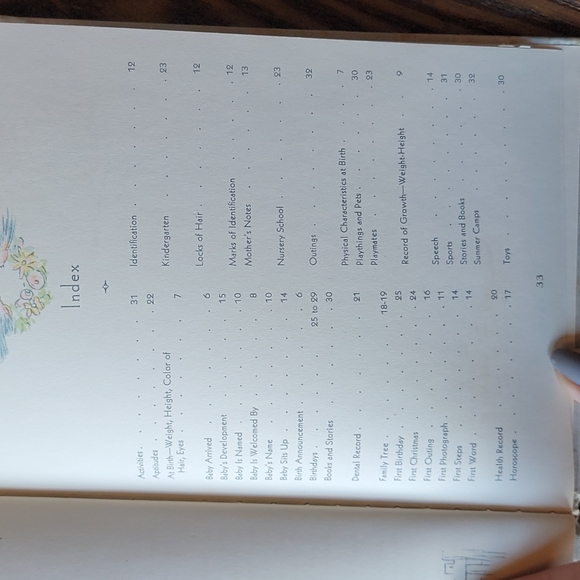 Index
Activities . . . . . . . . 31
Aptitudes . . . . . . . . 22
At Birth—Weight, Height, Color of
Hair, Eyes . . . . . . . 7
Baby Arrived . . . . . . . 6
Baby's Development . . . . . 15
Baby Is Named . . . . . . 10
Baby Is Welcomed By . . . . . 8
Baby's Name . . . . . . . 10
Baby Sits Up . . . . . . . 14
Birth Announcement . . . . . 6
Birthdays . . . . . . 25 to 29
Books and Stories . . . . . . 30
Dental Record . . . . . . . 21
Family Tree . . . . . . 18-19
First Birthday . . . . . . . 25
First Christmas . . . . . . . 24
First Outing . . . . . . . 16
First Photograph . . . . . . 11
First Steps . . . . . . . 14
First Word . . . . . . . 14
Health Record . . . . . . . 20
Horoscope . . . . . . . 17
Identification . . . . . . . 12
Kindergarten . . . . . . . 23
Locks of Hair . . . . . . . 12
Marks of Identification . . . . 12
Mother's Notes . . . . . . 13
Nursery School . . . . . . 23
Outings . . . . . . . . 32
Physical Characteristics at Birth . . 7
Playthings and Pets . . . . . 30
Playmates . . . . . . . 23
Record of Growth—Weight-Height . . 9
Speech . . . . . . . . 14
Sports . . . . . . . . 31
Stories and Books . . . . . 30
Summer Camps . . . . . . 32
Toys . . . . . . . . 30
33